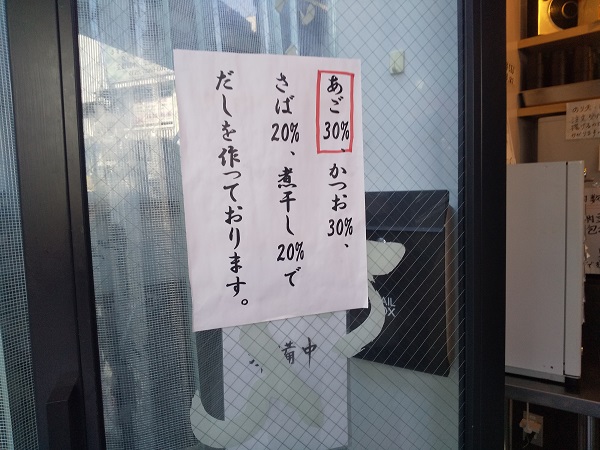 あご30%、かつお30%、
さば20%、煮干し20%で
だしを作っております。
準備中
MAIL
BOX